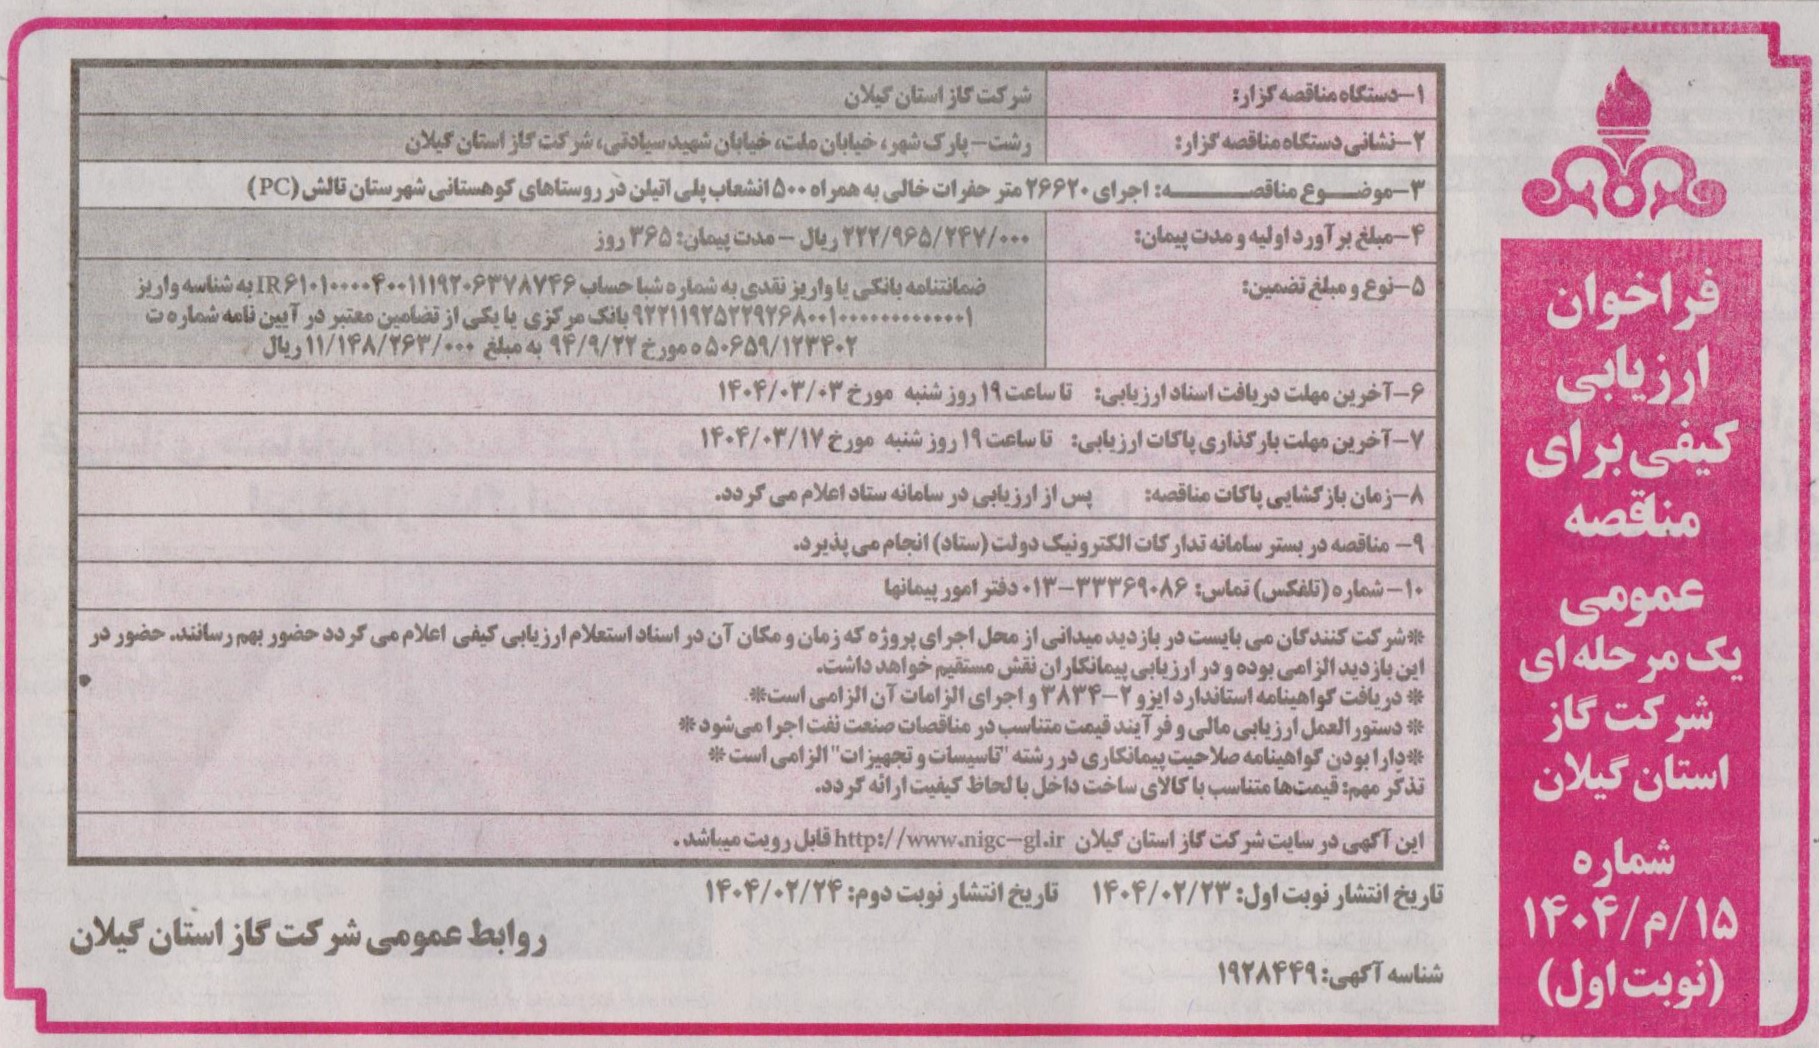 فراخوان
ارزیابی
کیفی برای
مناقصه
عمومی
یک مرحله ای
شرکت گاز
استان گیلان
شماره
۱۴۰۴/م/۱۵
(نوبت اول)
۱–دستگاه مناقصه گزار: شرکت گاز استان گیلان
۲–نشانی دستگاه مناقصه گزار: رشت– پارک شهر، خیابان ملت، خیابان شهید سیادتی، شرکت گاز استان گیلان
۳–موضوع مناقصه: اجرای ۲۶۶۲۰ متر حفرات خالی به همراه ۵۰۰ انشعاب پلی اتیلن در روستاهای کوهستانی شهرستان تالش (PC)
۴–مبلغ برآورد اولیه و مدت پیمان: ۲۲۲/۹۶۵/۲۴۷/۰۰۰ ریال – مدت پیمان: ۳۶۵ روز
۵–نوع و مبلغ تضمین: ضمانتنامه بانکی یا واریز نقدی به شماره شبا حساب IR۶۱۰۱۰۰۰۰۴۰۰۱۱۱۹۲۰۶۳۷۸۷۴۶ به شناسه واریز
۹۲۲۱۱۹۲۵۲۲۹۲۶۸۰۰۱۰۰۰۰۰۰۰۰۰۰۰۰۱ بانک مرکزی یا یکی از تضامین معتبر در آیین نامه شماره ت
۵۰۶۵۹/۱۲۳۴۰۲ ه مورخ ۹۴/۹/۲۲ به مبلغ ۱۱/۱۴۸/۲۶۳/۰۰۰ ریال
۶–آخرین مهلت دریافت اسناد ارزیابی: تا ساعت ۱۹ روز شنبه مورخ ۱۴۰۴/۰۳/۰۳
۷–آخرین مهلت بارگذاری پاکات ارزیابی: تا ساعت ۱۹ روز شنبه مورخ ۱۴۰۴/۰۳/۱۷
۸–زمان بازگشایی پاکات مناقصه: پس از ارزیابی در سامانه ستاد اعلام می گردد.
۹– مناقصه در بستر سامانه تدارکات الکترونیک دولت (ستاد) انجام می پذیرد.
۱۰– شماره (تلفکس) تماس: ۳۳۳۶۹۰۸۶–۰۱۳ دفتر امور پیمانها
*شرکت کنندگان می بایست در بازدید میدانی از محل اجرای پروژه که زمان و مکان آن در اسناد استعلام ارزیابی کیفی اعلام می گردد حضور بهم رسانند. حضور در
این بازدید الزامی بوده و در ارزیابی پیمانکاران نقش مستقیم خواهد داشت.
* دریافت گواهینامه استاندارد ایزو ۲–۳۸۳۴ و اجرای الزامات آن الزامی است*
* دستورالعمل ارزیابی مالی و فرآیند قیمت متناسب در مناقصات صنعت نفت اجرا می‌شود *
*دارا بودن گواهینامه صلاحیت پیمانکاری در رشته "تاسیسات و تجهیزات" الزامی است *
تذکر مهم: قیمت‌ها متناسب با کالای ساخت داخل با لحاظ کیفیت ارائه گردد.
این آگهی در سایت شرکت گاز استان گیلان http://www.nigc–gl.ir قابل رویت میباشد.
تاریخ انتشار نوبت اول: ۱۴۰۴/۰۲/۲۳ تاریخ انتشار نوبت دوم: ۱۴۰۴/۰۲/۲۴
روابط عمومی شرکت گاز استان گیلان
شناسه آگهی: ۱۹۲۸۴۴۹